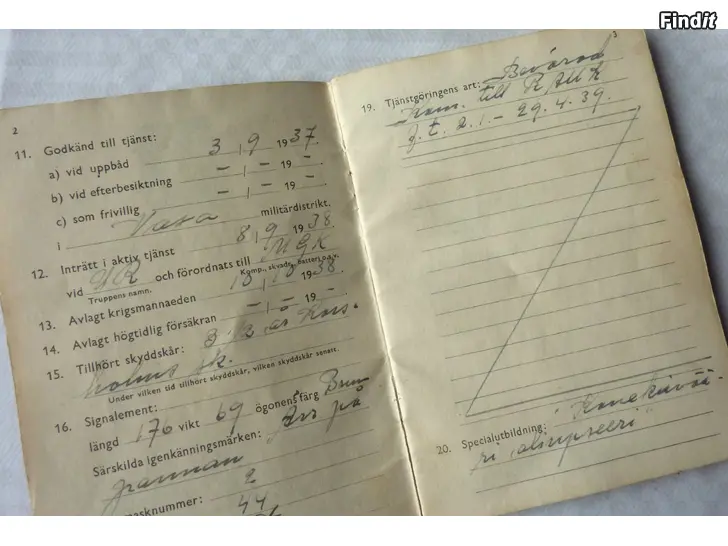 Findit
2
11. Godkänd till tjänst:
a) vid uppbåd 3 9 1937.
b) vid efterbesiktning – – 19 –
c) som frivillig – – 19 –
i Vasa militärdistrikt.
12. Inträtt i aktiv tjänst 8 9 1938.
vid och förordnats till MGK
Truppens namn. Komp., skvadr., batteri o.s.v.
13. Avlagt krigsmannaeden 1938.
14. Avlagt högtidlig försäkran – – 19 –
15. Tillhört skyddskår: år Kors-
holms sk.
Under vilken tid tillhört skyddskår, vilken skyddskår senast.
16. Signalement:
längd 176 vikt 69 ögonens färg Brun
Särskilda igenkänningsmärken: Ärr på
pannan
masknummer: 2
44
3
19. Tjänstgöringens art: Beväring
Kom. till RAUK
f.t. 2.1. – 29.4.39.
20. Specialutbildning: Konekivää-
ri aliupseeri